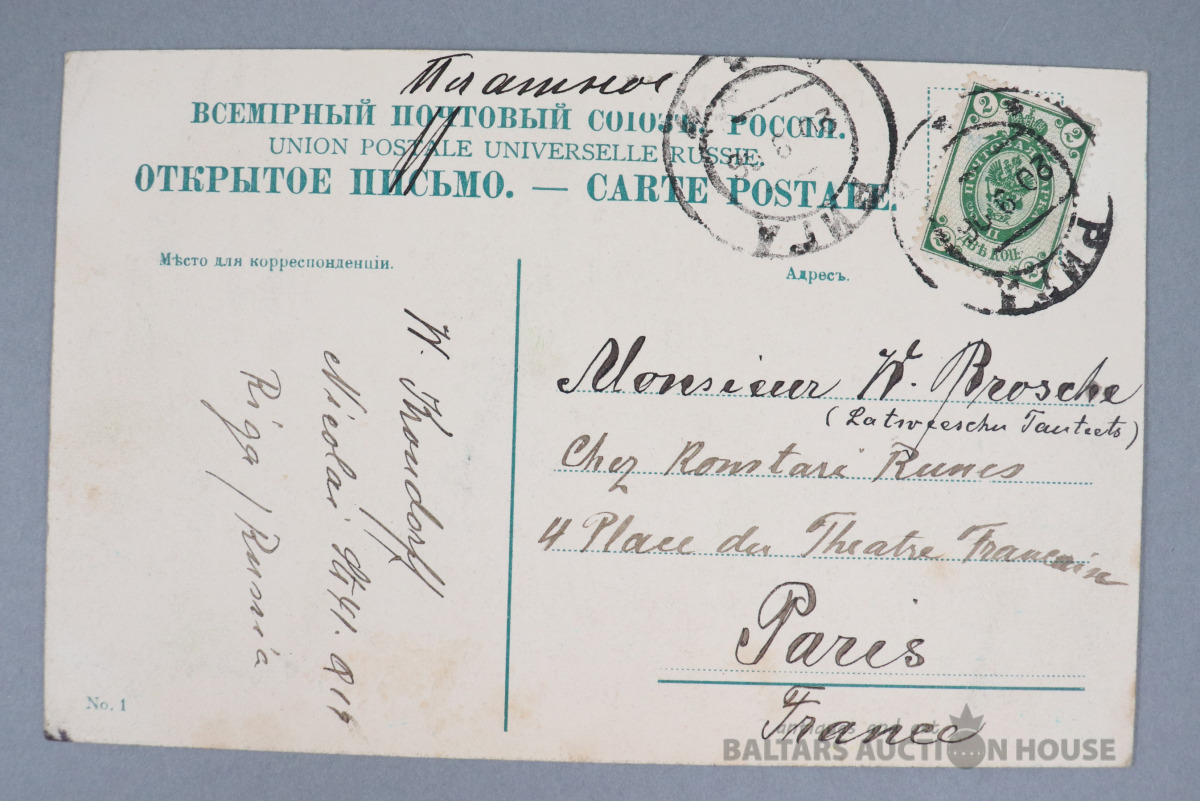 Платное
ВСЕМІРНЫЙ ПОЧТОВЫЙ СОЮЗЪ. РОССІЯ.
UNION POSTALE UNIVERSELLE RUSSIE.
ОТКРЫТОЕ ПИСЬМО. — CARTE POSTALE.
РИГА
РИГА
2 2
ПОЧТОВАЯ МАРКА
ДВѢ КОП.
2 2
Мѣсто для корреспонденціи.
Адресъ.
W. Thondorff
Nicolai Str.
Riga / Russia
Monsieur W. Brosche
(Latweeschu Tauteets)
Chez Konstari Runcs
4 Place du Theatre Francain
Paris
France
No. 1
BALTARS AUCTION HOUSE